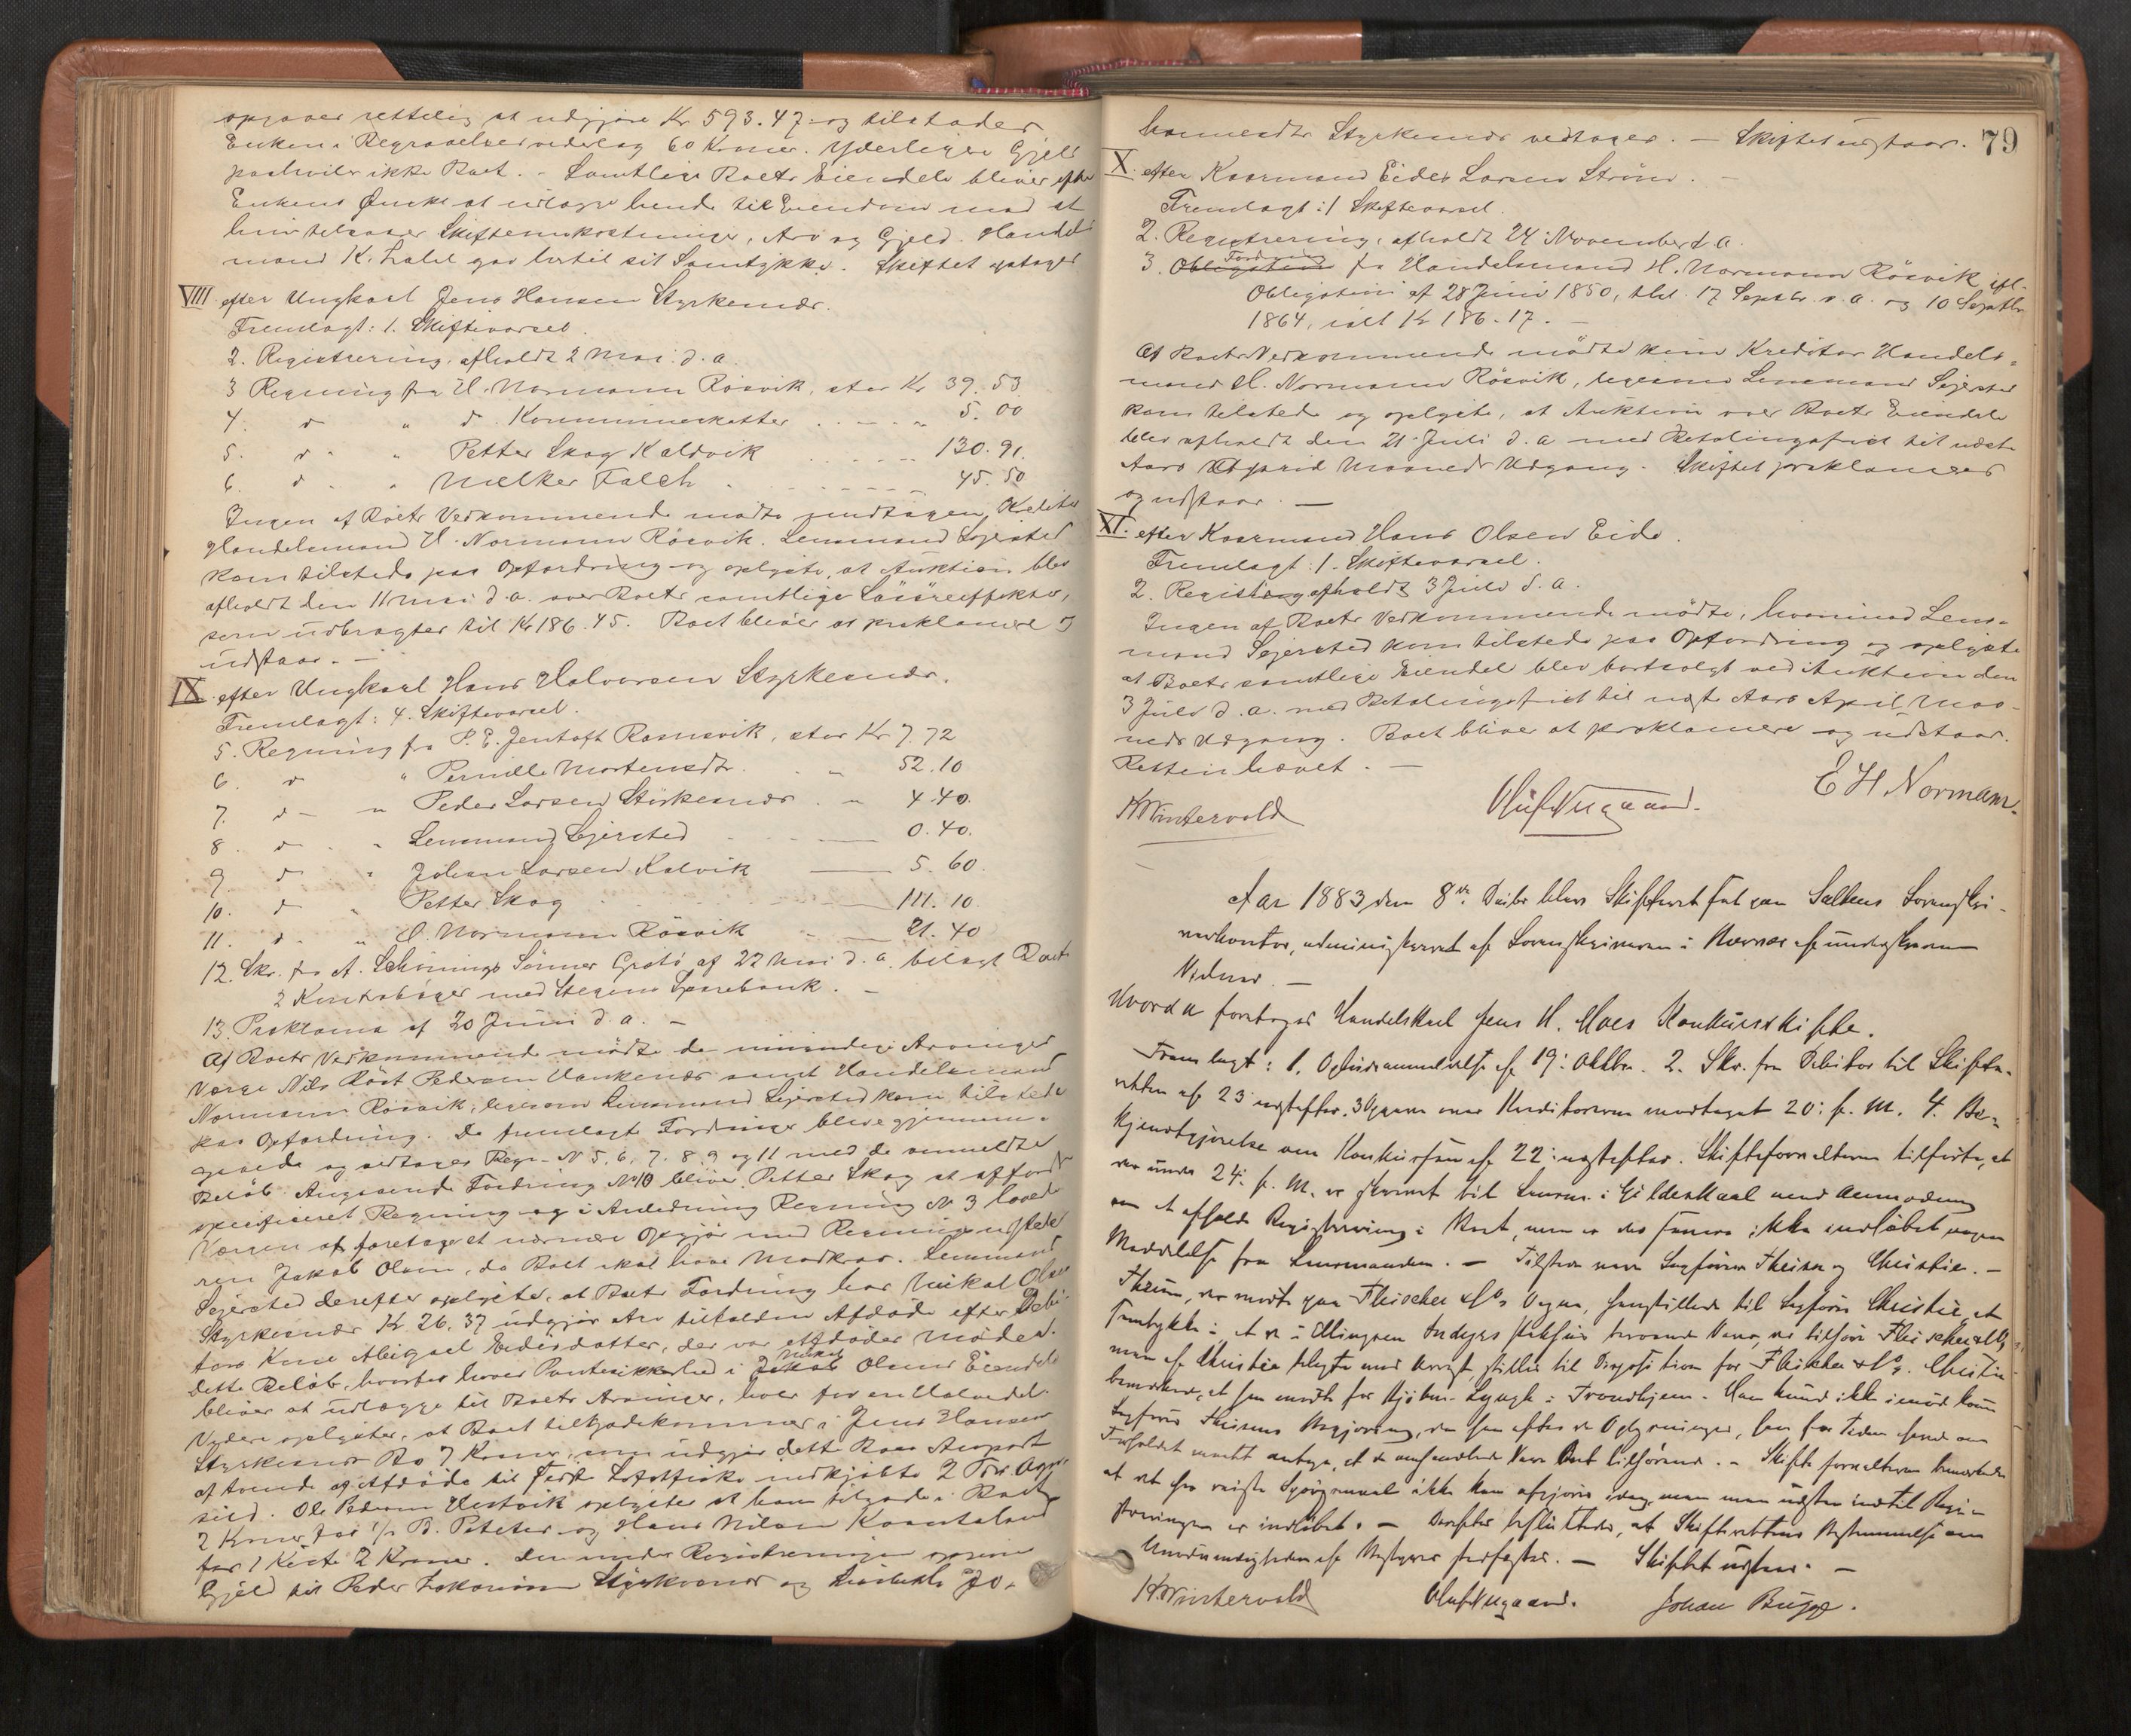 opgaves rettelig at udgjøre Kr 593.47 og tilstodes
Enken i Begravelsesvederlag 60 Kroner. Yderligere Gjeld
paahviler ikke Boet. - Samtlige Boets Eiendele bliver efter
Enkens Ønske at udlægge hende til Eiendom mod at
hun tilsvarer Skifteomkostninger, Arv og Gjeld. Handels
mand K. Zahl gav hertil sit Samtykke. Skiftet optages
VIII efter Ungkarl Jens Hansen Styrkesnæs.
Fremlagt: 1. Skiftevarsel.
2. Registrering, afholdt 2 Mai d. a.
3 Regning fra H. Normann Røsvik, stor Kr 39.53.
4. d " d. Kommuneskatter 5.00
5. d " Petter Skog Kaldvik 130.91.
6. d " Melker Falch 45.50
Ingen af Boets Vedkommende mødte undtagen Kreditor
Handelsmand H. Normann Røsvik. Lensmand Sejersted
kom tilstede paa Opfordring og oplyste, at Auktion blev
afholdt den 11 Mai d. a. over Boets samtlige Løsøreeffekter,
som udbragtes til Kr 186.45. Boet bliver at proklamere og
udstaar. -
IX efter Ungkarl Hans Halvorsen Styrkesnæs.
Fremlagt: 4. Skiftevarsel.
5. Regning fra P. E. Jentoft Ramsvik, stor Kr 7.72
6 d " Pernille Mortensdtr. 52.10
7. d - " Peder Larsen Störkesnæs. " 4.40.
8. d . " Lensmand Sejersted 0.40.
9 d . " Johan Larsen Kalvik 5.60.
10. d " Petter Skog 111.10
11. d. " H. Normann Røsvik 21.40
12. Skr. fra A. Schønings Sønner Grøtø af 22 Mai d. a. bilagt
2 Kontrabøger med Stegens Sparebank. -
13. Proklama af 20 Juni d. a. -
Af Boets Vedkommende mødte de umyndige Arvingers
Værge Nils Röst Pedersen samt Handelsmand
Normann Røsvik, ligesom Lensmand Sejersted kom tilstede
paa Opfordring. De fremlagte Fordringer bleve gjennem-
gaaede og vedtoges Regn. N 5, 6, 7, 8, 9 og 11 med de anmeldte
Beløb. Angaaende Fordring N 10 bliver Petter Skog at affordre
specificeret Regning og i Anledning Regning N 3 lovede
Værgen at foretage et nærmere Opgjør med Regningsudstede
ren Jakob Olsen, da Boet skal have Modkrav. Lensmand
Sejersted derefter oplyste, at Boets Fordring hos Mikal Olsen
Styrkesnæs Kr. 26.37 udgjør Arv tilfalden Afdøde efter
fars Kone Abigael Eidisdatter, der var Afdødes Moder.
dette Beløb, hvorfor haves Pantesikkerhed i Mikal Olsens Eiendele
bliver at udlægge til Boets Arvinger, hver for en Halvedel.
Videre oplystes, at Boet tilgodekommer i Jens Hansen
Styrkesnæs Bo 7 Kroner, som udgjør dette Boes Anpart
af tvende af Afdøde til Lofotfiske indkjøbte 2 Tdr.
sild. Ole Pedersen oplyste at have tilgode i Boet
2 Kroner for og Hans Nilsen
for 1 Kiste 2 Kroner. Den under Registreringen opgivne
Gjeld til Peder Zakariassen Styrkesnæs og Jo-
79
hannesdtr Styrkesnæs vedtoges. - Skiftet udstaar.
X. efter Kaarmand Eider Larsen Strøm. -
Fremlagt: 1 Skiftevarsel.
2. Registrering, afholdt 24 November d. a.
3. Obligation Fordring fra Handelsmand H. Normann Røsvik ifl.
Obligation af 28 Juni 1850, thl. 17 Septbr. s. a. og 10 Septbr
1864, ialt Kr 186.17. -
Af Boets Vedkommende mødte kun Kreditor Handels-
mand H. Normann Røsvik, ligesom Lensmand Sejersted
kom tilstede og oplyste, at Auktion over Boets Eiendele
blev afholdt den 21 Juli d. a. med Betalingsfrist til næste
Aars April Maaneds Udgang. Skiftet proklameres
og udstaar. -
XI. efter Kaarmand Hans Olsen Eide.
Fremlagt: 1. Skiftevarsel.
2. Registrering afholdt 3 Juli d. a.
Ingen af Boets Vedkommende mødte, hvorimod Lens-
mand Sejersted kom tilstede paa Opfordring og oplyste
at Boets samtlige Eiendele blev bortsolgt ved Auktion den
3 Juli d. a. med Betalingsfrist til næste Aars April Maa-
neds Udgang. Boet bliver at proklamere og udstaar.
Retten hævet. -
H Wintervold Oluf Nygaard. E H Normann.
Aar 1883 den 8de Decbr blev Skifteret sat paa Saltens Sorenskri-
verkontor, administreret af Sorenskriveren i Overvær af undertegnede
Vidner. -
Hvorda foretoges Handelskarl Jens H. Moes Konkursskifte.
Fremlagt: 1. Opbudsanmeldelse af 19: Oktbr. 2. Skr. fra Debitor til Skifte-
retten af 23 næstefter. 3 Opgave over Kreditorerne modtaget 20: f. M. 4. Be-
kjendtgjørelse om Konkursen af 22: næstefter. Skifteforvalteren tilførte, at
der under 24: f. M. er skrevet til Lensm. i Gildeskaal med Anmodning
om at afholde Registrering i Boet, men er der endnu ikke indløbet nogen
Meddelelse fra Lensmanden. - Tilstede vare Sagfører Theisen og Christie. -
Theisen, der mødte paa Fleischer & Co's Vegne, henstillede til Sagfører Christie, at
samtykke i at de i beroende Varer, der tilhøre Fleischer & Co
stilles til Disposition for Fleischer & Co. Christie
bemærkede, at han mødte for Kjøbm. Lyngh i Trondhjem. Han kunde ikke imødekomme
Sagfører Theisens Begjæring, da han efter de Oplysninger, han for Tiden havde om
Forholdet maatte antage, at de omhandlede Varer Boet tilhørende. - Skifteforvalteren bemærkede
at det heromhandlede Spørgsmaal ikke kan afgjøres idag, men maa udstaa indtil Regi-
streringen er indløbet. - Derefter besluttedes, at Skifterettens Bestemmelse om
Unødvendigheden af Bestyrer stadfæstes. - Skiftet udstaar. -
H Wintervold Oluf Nygaard. Johan Bugge.